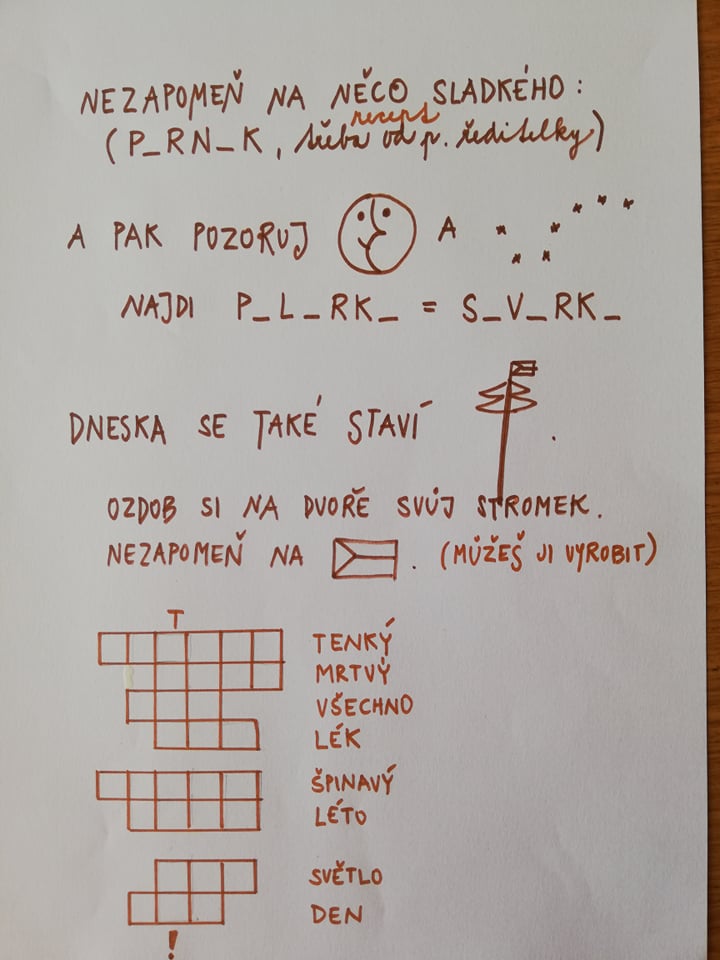 NEZAPOMEŇ NA NĚCO SLADKÉHO:
recept
(P_RN_K, třeba od p. ředitelky)
A PAK POZORUJ A
NAJDI P_L_RK_ = S_V_RK_
DNESKA SE TAKÉ STAVÍ .
OZDOB SI NA DVOŘE SVŮJ STROMEK.
NEZAPOMEŇ NA . (MŮŽEŠ JI VYROBIT)
T
TENKÝ
MRTVÝ
VŠECHNO
LÉK
ŠPINAVÝ
LÉTO
SVĚTLO
DEN
!